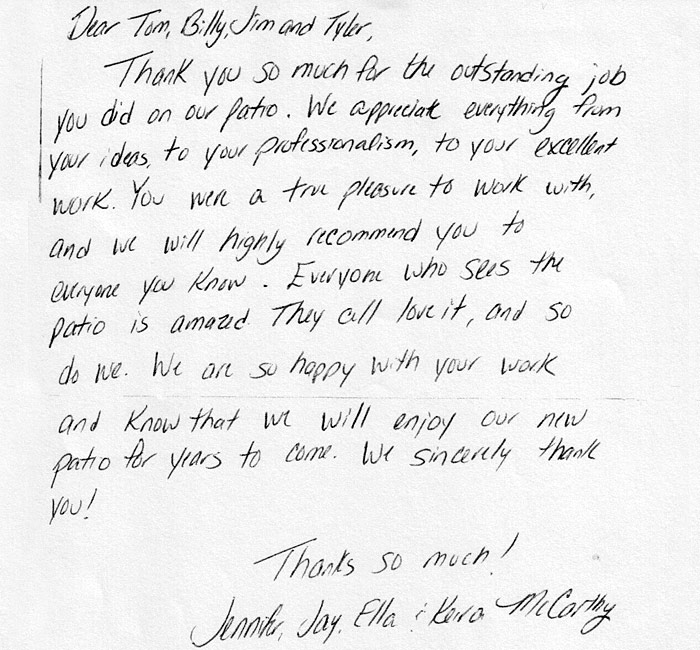 Dear Tom, Billy, Jim and Tyler,
Thank you so much for the outstanding job
you did on our patio. We appreciate everything from
your ideas, to your professionalism, to your excellent
work. You were a true pleasure to work with,
and we will highly recommend you to
everyone you know. Everyone who sees the
patio is amazed. They all love it, and so
do we. We are so happy with your work
and know that we will enjoy our new
patio for years to come. We sincerely thank
you!
Thanks so much!
Jennifer, Jay, Ella & Keira McCarthy